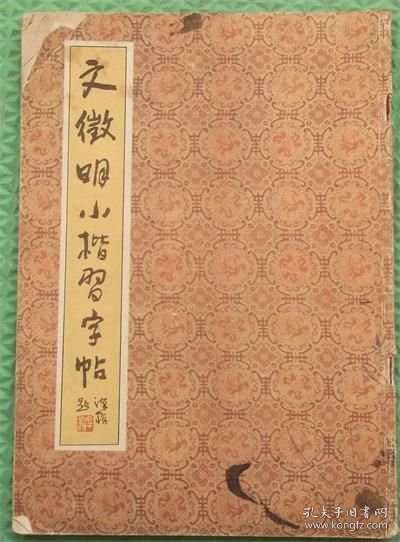 文徵明小楷習字帖
题
孔夫子旧书网
book.kongfz.com